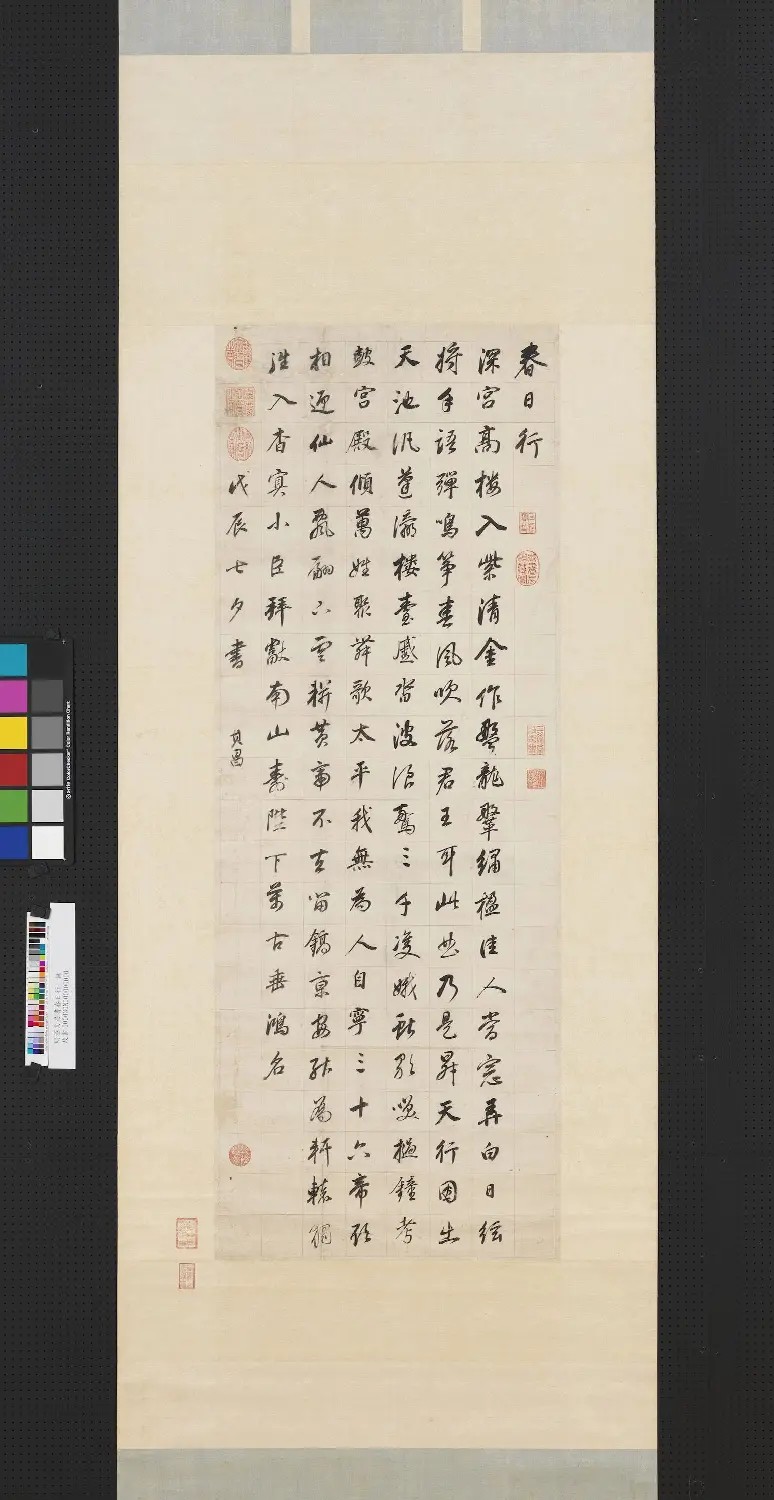 春日行
深宮高樓入紫清金作龍繡楹佳人當窓弄白日絃
將手語彈鳴箏春風吹落君王耳此曲乃是昇天行因出
天池汎蓬瀛樓臺蹙沓波浪驚三千雙蛾獻歌笑撾鐘考
鼓宮殿傾萬姓聚舞歌太平我無為人自寧三十六帝欲
相迎仙人飄翩下雲軿黃帝不去留鎬京安能為軒轅獨
往入杳冥小臣拜獻南山壽陛下萬古垂鴻名
戊辰七夕書
其昌